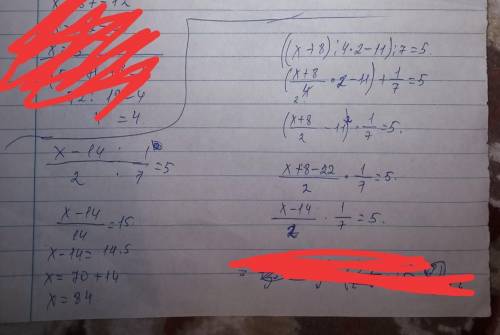 12
= 4
= 4
((x+8):4·2-11):7=5.
(x+8/4·2-11)+1/7=5
2
(x+8/2-11)·1/7=5.
x+8-22/2·1/7=5.
x-14/2·1/7=5.
x-14·1/2·7=5
x-14/14=15
x-14=14.5
x=70+14
x=84